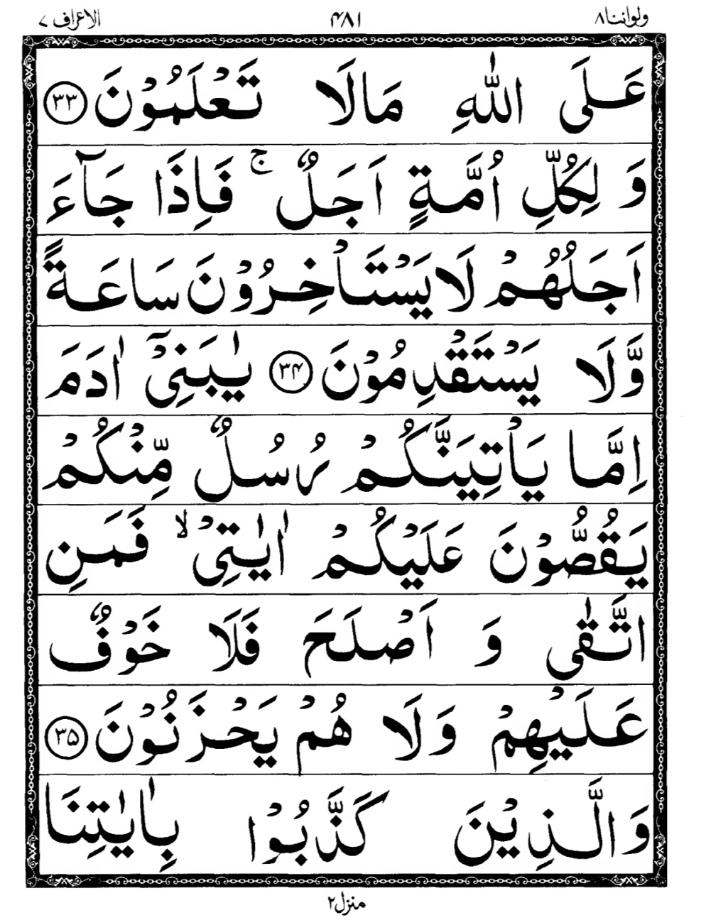 ولواننا٨ ۴۸۱ الاعراف ٧
عَـلَى اللّٰهِ مَالَا تَـعْلَمُوْنَ ﴿۳۳﴾
وَ لِكُلِّ اُمَّـةٍ اَجَـلٌ ۚ فَاِذَا جَآءَ
اَجَلُهُـمْ لَا يَسْتَـاْخِـرُوْنَ سَاعَـةً
وَّلَا يَسْتَقْدِمُوْنَ ﴿۳۴﴾ يٰبَنِىْٓ اٰدَمَ
اِمَّا يَاْتِيَنَّكُـمْ رُسُـلٌ مِّنْكُمْ
يَقُصُّوْنَ عَلَيْكُـمْ اٰيٰتِىْ ۙ فَمَـنِ
اتَّـقٰى وَ اَصْلَـحَ فَلَا خَوْفٌ
عَـلَيْهِمْ وَلَا هُمْ يَحْزَنُـوْنَ ﴿۳۵﴾
وَالَّـذِيْنَ كَذَّبُـوْا بِاٰيٰتِنَا
منزل۲